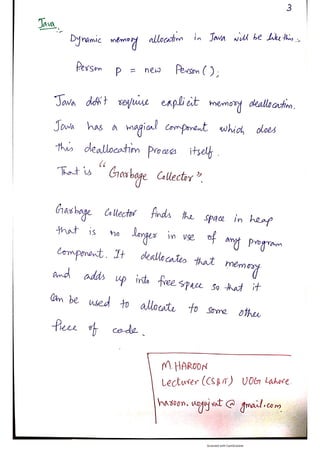 3
Java
:- Dynamic memory allocation in Java will be like this :-
Person p = new Person();
Java don't require explicit memory deallocation.
Java has a magical component which does
this deallocation process itself.
That is "Garbage Collector".
Garbage Collector finds the space in heap
that is no longer in use of any program
component. It deallocates that memory
and adds up into free space so that it
can be used to allocate to some other
piece of code.
M HAROON
Lecturer (CS&IT) UOG Lahore
haroon.uogujrat@gmail.com
Scanned with CamScanner